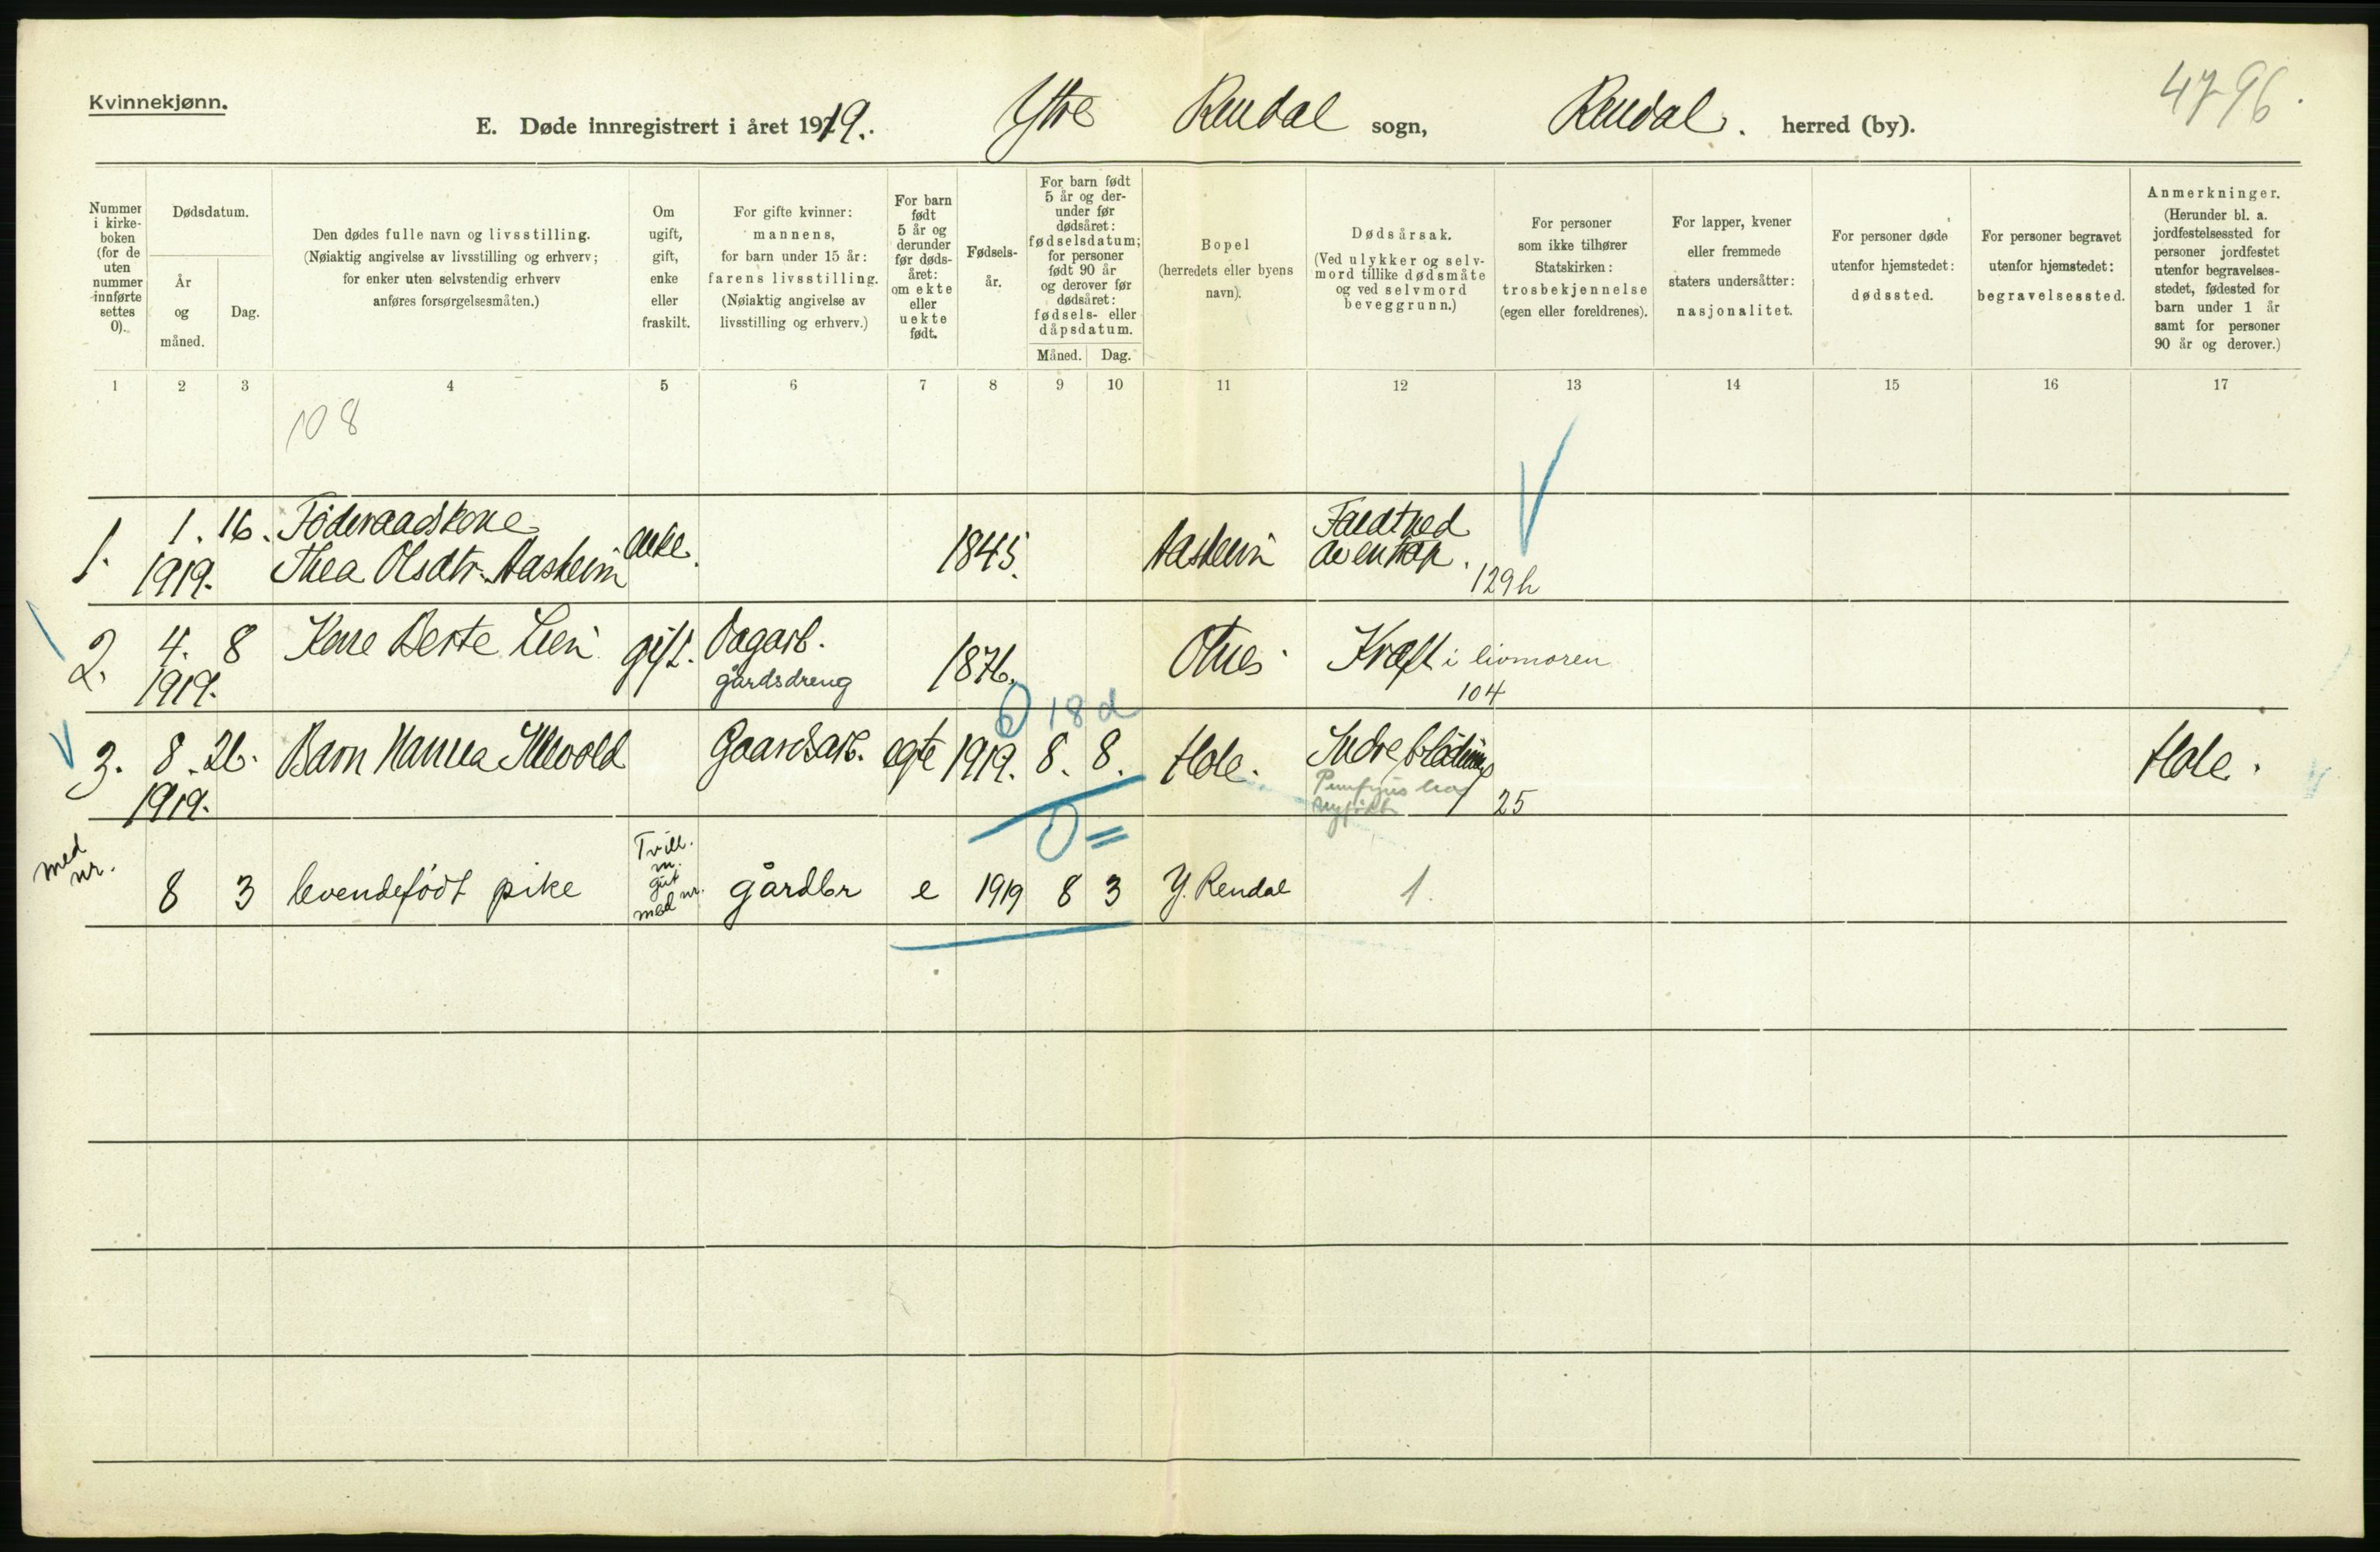 Kvinnekjønn.
E. Døde innregistrert i året 1919. Ytre Rendal sogn, Rendal. herred (by).
4796.
Nummer i kirkeboken (for de uten nummer innførte settes 0).
Dødsdatum.
År og måned.
Dag.
Den dødes fulle navn og livsstilling.
(Nøiaktig angivelse av livsstilling og erhverv;
for enker uten selvstendig erhverv
anføres forsørgelsesmåten.)
Om
ugift,
gift,
enke
eller
fraskilt.
For gifte kvinner:
mannens,
for barn under 15 år:
farens livsstilling.
(Nøiaktig angivelse av
livsstilling og erhverv.)
For barn
født
5 år og
derunder
før døds-
året:
om ekte
eller
uekte
født.
Fødsels-
år.
For barn født
5 år og der-
under før
dødsåret:
fødselsdatum;
for personer
født 90 år
og derover før
dødsåret:
fødsels- eller
dåpsdatum.
Måned. Dag.
Bopel
(herredets eller byens
navn).
Dødsårsak.
(Ved ulykker og selv-
mord tillike dødsmåte
og ved selvmord
beveggrunn.)
For personer
som ikke tilhører
Statskirken:
trosbekjennelse
(egen eller foreldrenes).
For lapper, kvener
eller fremmede
staters undersåtter:
nasjonalitet.
For personer døde
utenfor hjemstedet:
dødssted.
For personer begravet
utenfor hjemstedet:
begravelsessted.
Anmerkninger.
(Herunder bl. a.
jordfestelsessted for
personer jordfestet
utenfor begravelses-
stedet, fødested for
barn under 1 år
samt for personer
90 år og derover.)
1 2 3 4 5 6 7 8 9 10 11 12 13 14 15 16 17
108
1. 1. 16. Föderaadskone
1919. Thea Olsdtr. Aasheim enke. 1845. Aasheim
av en trap. 129h
2. 4. 8 Kone Berte Lien gift. Dagarb. 1876. Otnes Kræft i livmoren
1919. gårdsdreng 104
6 18 d
3. 8. 26. Barn Hanna Gaardsarb. egte 1919. 8. 8. Hole. Indre blödning Hole.
1919. 25
med nr. 8 3 levendefødt pike Tvill. m. gut med nr. gårdbr e 1919 8 3 Y. Rendal 1.